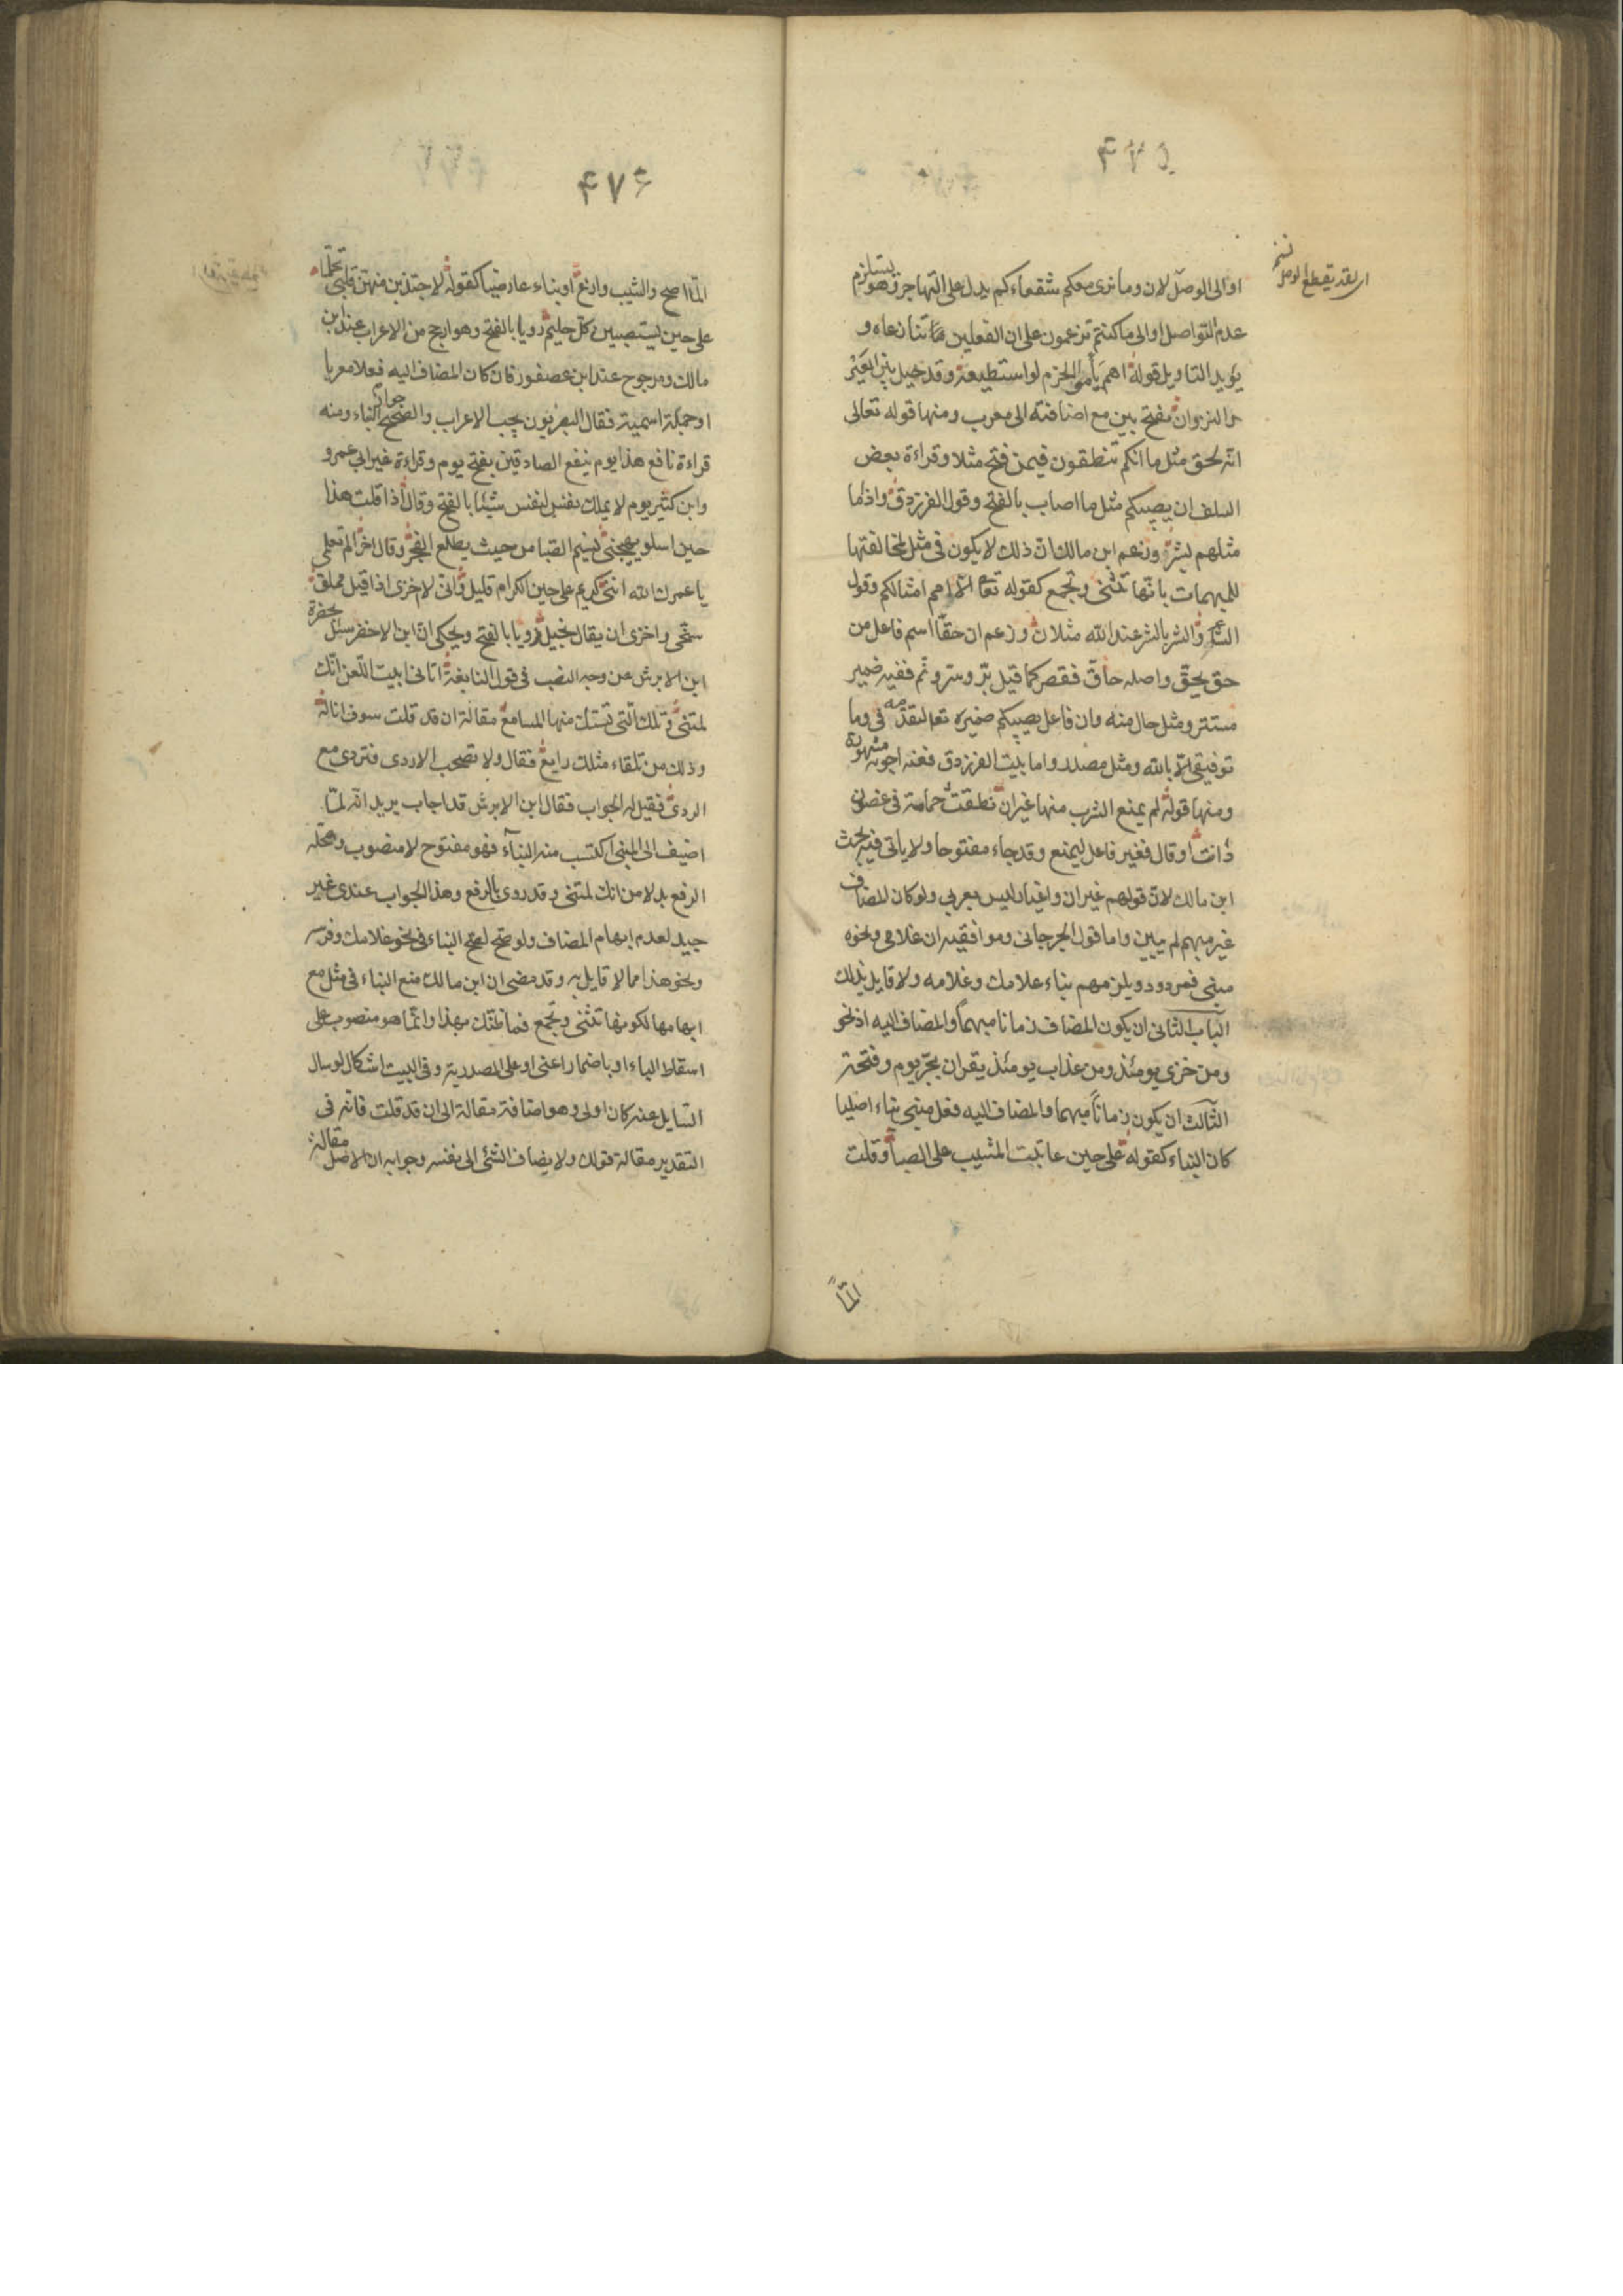 ۴۷۵
او الى الوصل لان وما نرى معكم شفعاءكم يدل على التهاجر وهو يستلزم
عدم التواصل او الى ما كنتم تزعمون على ان الفعلين تنازعاه و
يؤيد التاويل قوله اهم بامر الحزم لو استطيعه وقد حيل بين العير
والنزوان بفتح بين مع اضافته الى معرب ومنها قوله تعالى
انه لحق مثل ما انكم تنطقون فيمن فتح مثلا وقراءة بعض
السلف ان يصيبكم مثل ما اصاب بالفتح وقول الفرزدق واذ ما
مثلهم بشر وزعم ابن مالك ان ذلك لا يكون فى مثل لمخالفتها
للمبهمات بانها تثنى وتجمع كقوله تعا الا امم امثالكم وقول
الشاعر والشر بالشر عند الله مثلان وزعم ان حقا اسم فاعل من
حق يحق واصله حاق فقصر كما قيل بر وسر ونم ففيه ضمير
مستتر ومثل حال منه وان فاعل يصيبكم ضميره تعا لتقدمه فى وما
توفيقى الا بالله ومثل مصدر واما بيت الفرزدق ففيه اجوبة مشهورة
ومنها قوله لم يمنع الشرب منها غير ان نطقت حمامة فى غصون
ذات اوقال فغير فاعل ليمنع وقد جاء مفتوحا ولا ياتى فيه بحث
ابن مالك لان قولهم غيران واغيار ليس بعربى ولو كان المضاف
غير مبهم لم يبين واما قول الجرجانى وموافقيه ان غلامى ونحوه
مبنى فمردود ويلزمهم بناء غلامك وغلامه ولا قايل بذلك
الباب الثانى ان يكون المضاف زمانا مبهما والمضاف اليه اذ نحو
ومن خزى يومئذ ومن عذاب يومئذ يقران بجر يوم وفتحه
الثالث ان يكون زمانا مبهما والمضاف اليه فعل مبنى بناء اصليا
كان البناء كقوله على حين عاتبت المشيب على الصبا وقلت
المّا
نسخه
اى لقد تقطع الوصل
۴۷۶
المّا اصح والشيب وازع او بناء عارضيا كقوله لاجتذبن منهن قلبى تحلما
على حين يستصبين كل حليم رويا بالفتح وهو ارجح من الاعراب عند ابن
مالك ومرجوح عند ابن عصفور فان كان المضاف اليه فعلا معربا
او جملة اسمية فقال البصريون يجب الاعراب والصحيح جواز البناء ومنه
قراءة نافع هذا يوم ينفع الصادقين بفتح يوم وقراءة غير ابى عمرو
وابن كثير يوم لا يملك نفس لنفس شيئا بالفتح وقال اذا قلت هذا
حين اسلو يهيجنى نسيم الصبا من حيث يطلع الفجر وقال اخر الم تعلمى
يا عمرك الله اننى كريم على حين الكرام قليل وانى لا اخزى اذا قيل مملق
سخى واخزى ان يقال بخيل رويا بالفتح ويحكى ان ابن الاخضر سئل بحضرة
ابن الابرش عن وجه النصب فى قول النابغة اتانى ابيت اللعن انك
لمتنى وتلك التى تستك منها المسامع مقالة ان قد قلت سوف اناله
وذلك من تلقاء مثلك رايع فقال ولا تصحب الاردى فتردى مع
الردى فقيل له الجواب فقال ابن الابرش قد اجاب يريد انه لما
اضيف الى المبنى اكتسب منه البناء فهو مفتوح لا منصوب ومحله
الرفع بدلا من انك لمتنى وقد روى بالرفع وهذا الجواب عندى غير
جيد لعدم ابهام المضاف ولو صح لصح البناء فى نحو غلامك وفرسه
ونحو هذا مما لا قايل به وقد مضى ان ابن مالك منع البناء فى مثل مع
ابهامها لكونها تثنى وتجمع فما ظنك بهذا وانما هو منصوب على
اسقاط الباء او باضمار اعنى او على المصدرية وفى البيت اشكال لو سال
السايل عنه كان اولى وهو اضافة مقالة الى ان قد قلت فانه فى
التقدير مقالة قولك ولا يضاف الشئ الى نفسه وجوابه ان الاصل مقالة